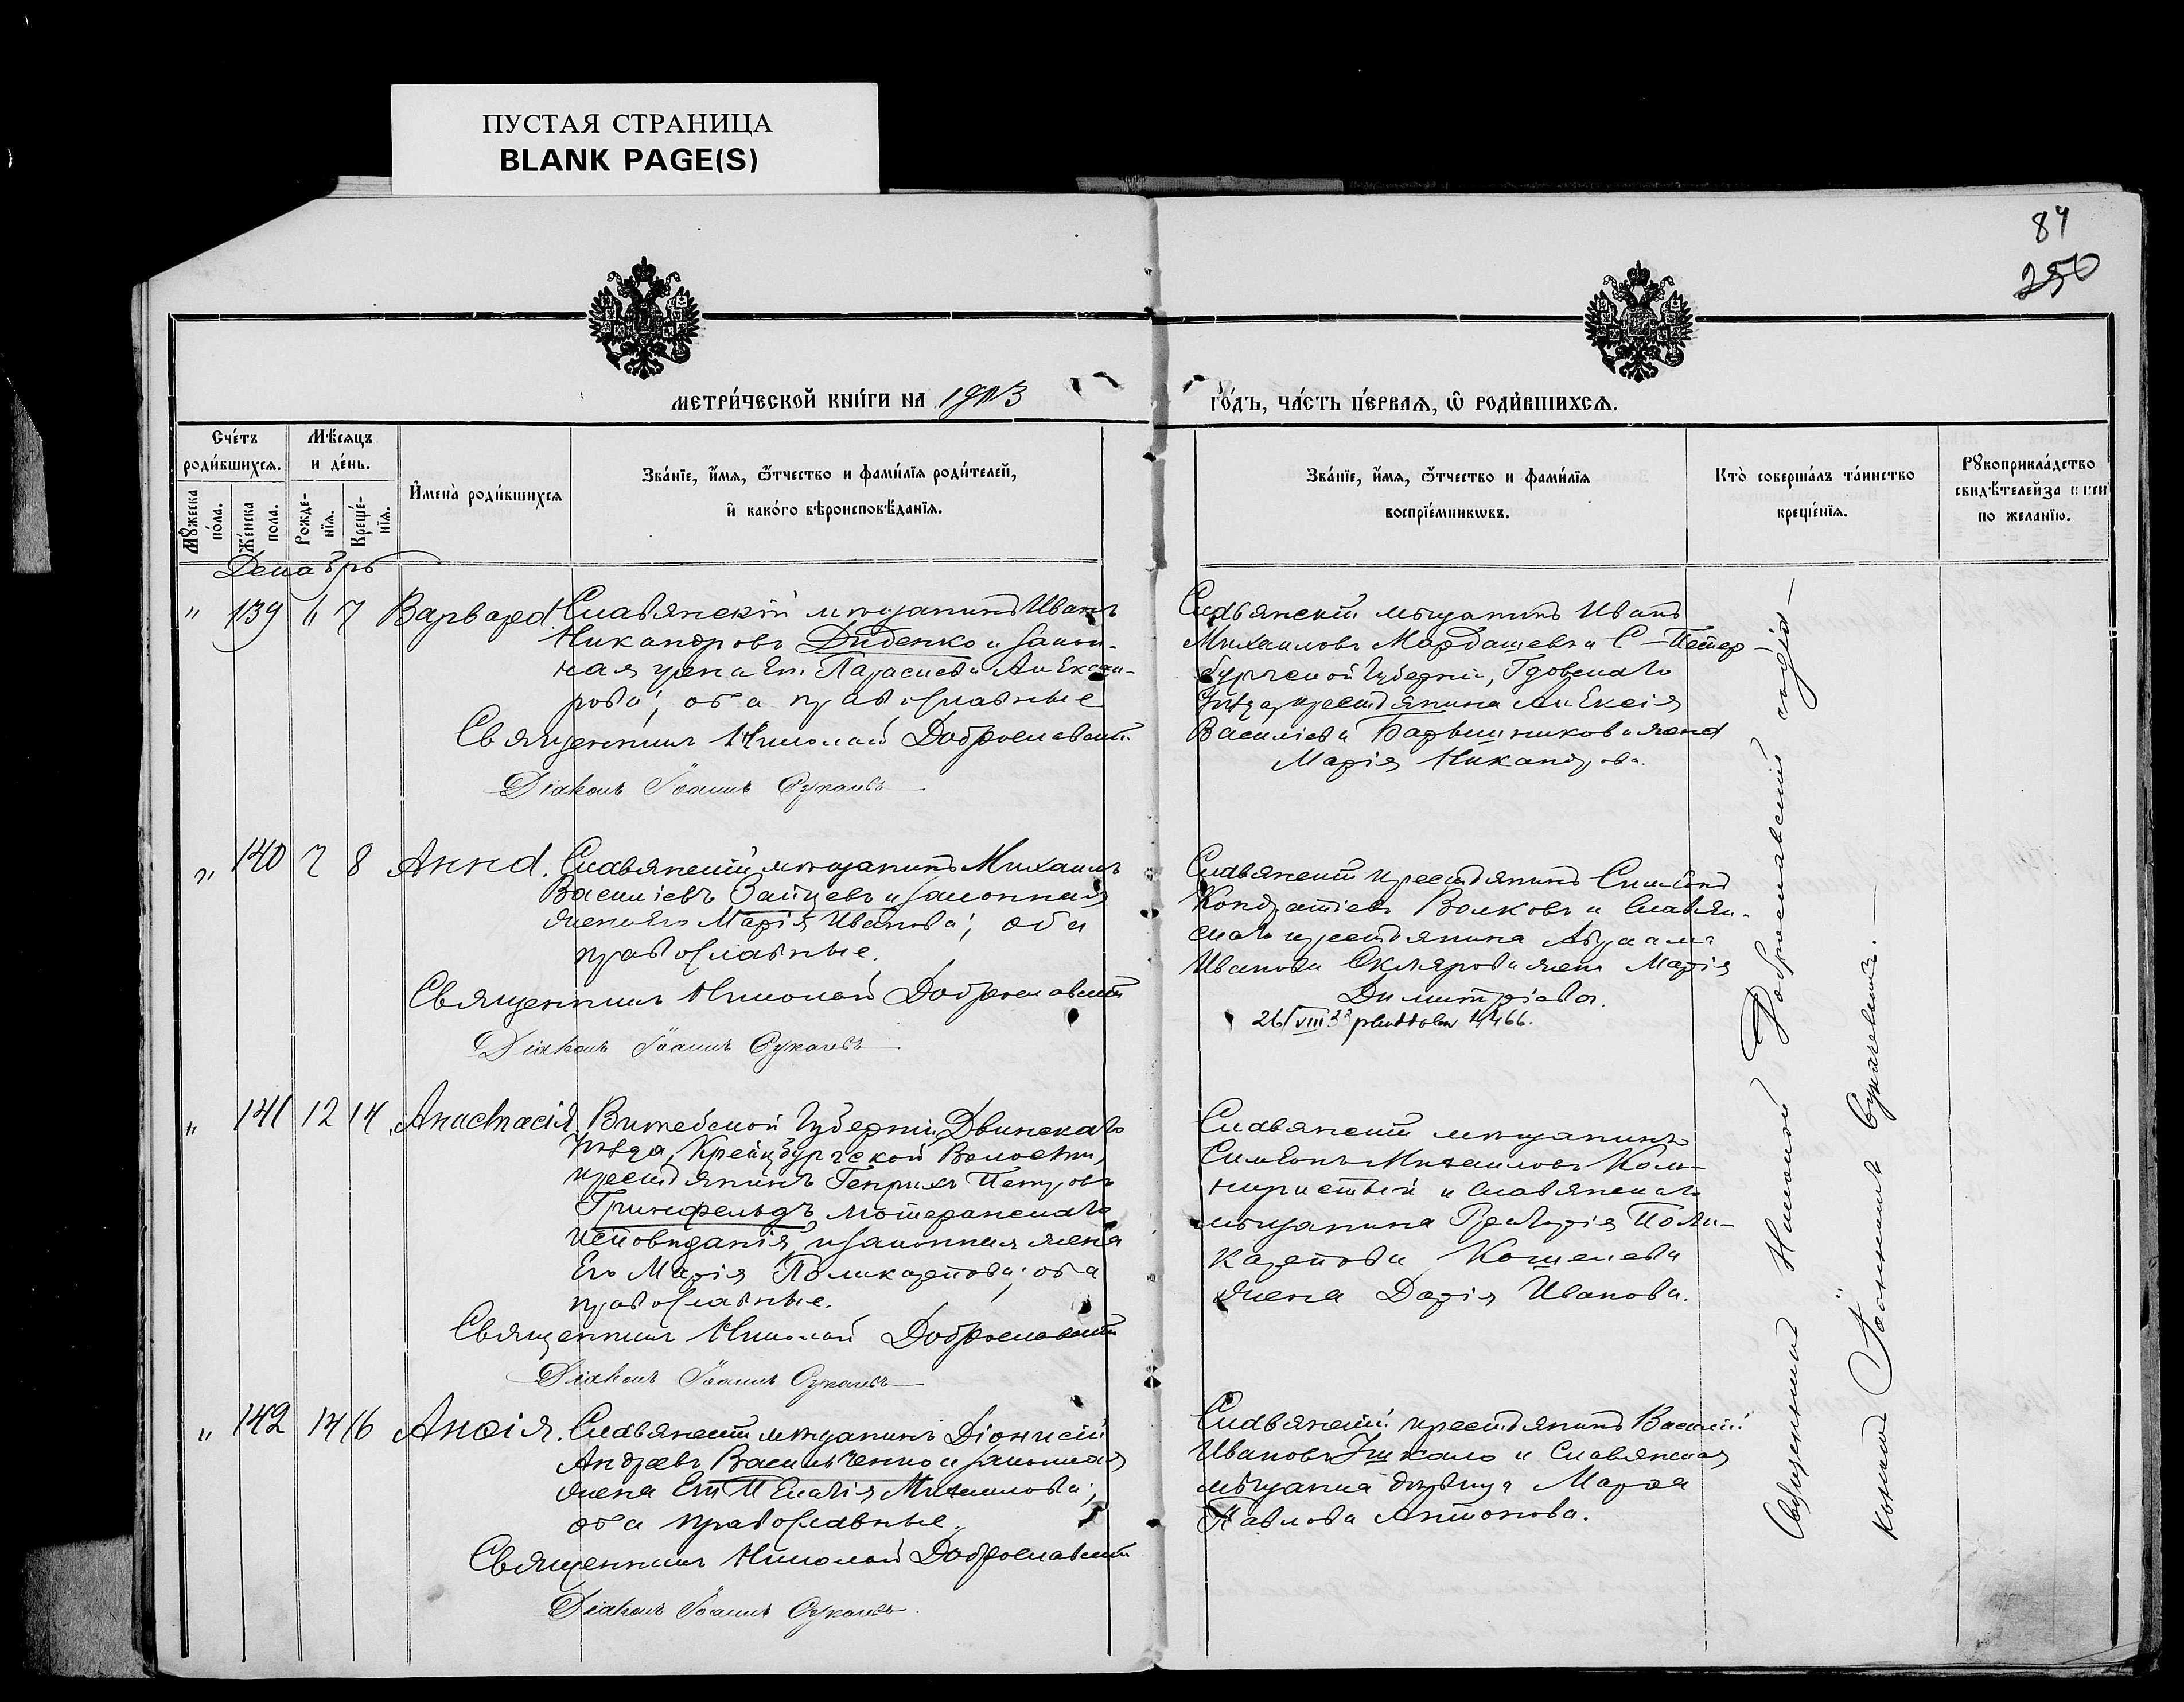 ПУСТАЯ СТРАНИЦА
BLANK PAGE(S)
84
250
МЕТРИ́ЧЕСКОЙ КНИ́ГИ НА 1913
ГО́ДЪ, ЧА́СТЬ ПЕ́РВАѦ, Ѿ РОДИ́ВШИХСѦ.
Сче́тъ роди́вшихсѧ.
Мѣ́сѧцъ и де́нь.
Мꙋ́жеска по́ла.
Же́нска пола.
Рожде́нїѧ.
Креще́нїѧ.
И҆мена̀ роди́вшихсѧ
Зва́нїе, и҆́мѧ, ѻ҆́тчество и фами́лїѧ роди́телей,
и҆ како́гѡ вѣроисповѣ́данїѧ.
Зва́нїе, и҆́мѧ, ѻ҆́тчество и фами́лїѧ
воспрїе́мникѡвъ.
Кто̀ соверша́лъ та́инство
креще́нїѧ.
Рꙋкоприкла́дство
свидѣ́телей
по желанїю.
Декабрь
" 139 6 7 Варвара Славянскій мѣщанинъ Иванъ
Никандровъ Диденко и закон-
ная жена его Параскева Алексан-
рова; оба православные
Священникъ Николай Доброславскій
Діаконъ Іоаннъ
Славянскій мѣщанинъ Иванъ
Михаиловъ Мардашевъ и С-Петер-
бургской Губерніи, Гдовскаго
уѣзда, крестьянина Алексія
Василіева жена
Марія Никандрова.
" 140 7 8 Анна. Славянскій мѣщанинъ Михаилъ
Василіевъ Зайцевъ и законная
жена его Марія Иванова; оба
православные.
Священникъ Николай Доброславскій
Діаконъ Іоаннъ
Славянскій крестьянинъ Симеонъ
Кондратіевъ Волковъ и Славян-
скаго крестьянина Авраама
Иванова Склярова жена Марія
Димитріева.
26/VIII 33 4466.
" 141 12 14 Анастасія. Витебской Губерніи Двинскаго
Уѣзда, Крейцбургской Волости,
крестьянинъ Генрихъ Петровъ
Гринфельдъ, лютеранскаго
исповѣданія, и законная жена
его Марія Поликарпова; оба
православные.
Священникъ Николай Доброславскій
Діаконъ Іоаннъ
Славянскій мѣщанинъ
Симеонъ Михаиловъ
и славянскаго
мѣщанина Григорія Поли-
карпова Кошелева
жена Дарія Иванова.
" 142 14 16 Анісія. Славянскій мѣщанинъ Діонисій
Андреевъ Васильченко и законная
жена его Пелагія Михаилова;
оба православные.
Священникъ Николай Доброславскій
Діаконъ Іоаннъ
Славянскій крестьянинъ Василій
Ивановъ и Славянская
мѣщанка дѣвица
Павлова Антонова.
Священникъ Николай Доброславскій